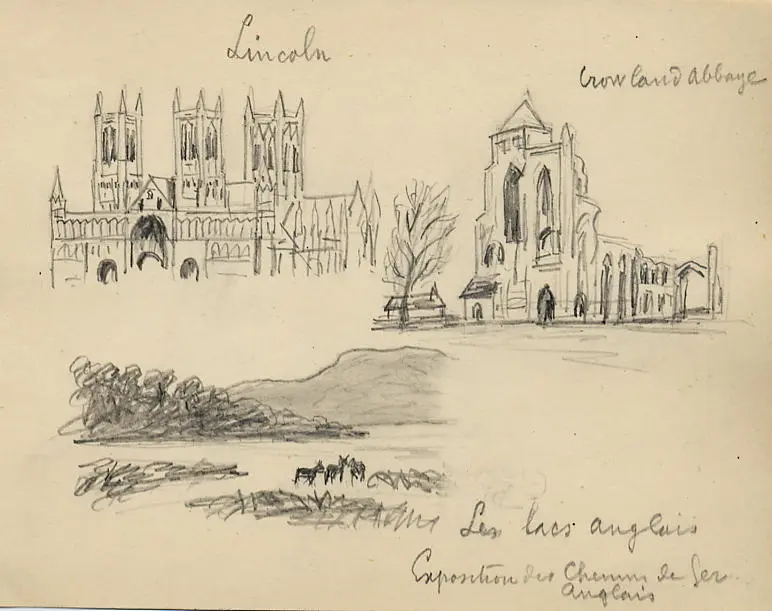 Lincoln
Crowland Abbaye
Les lacs anglais
Exposition des Chemins de Fer
Anglais